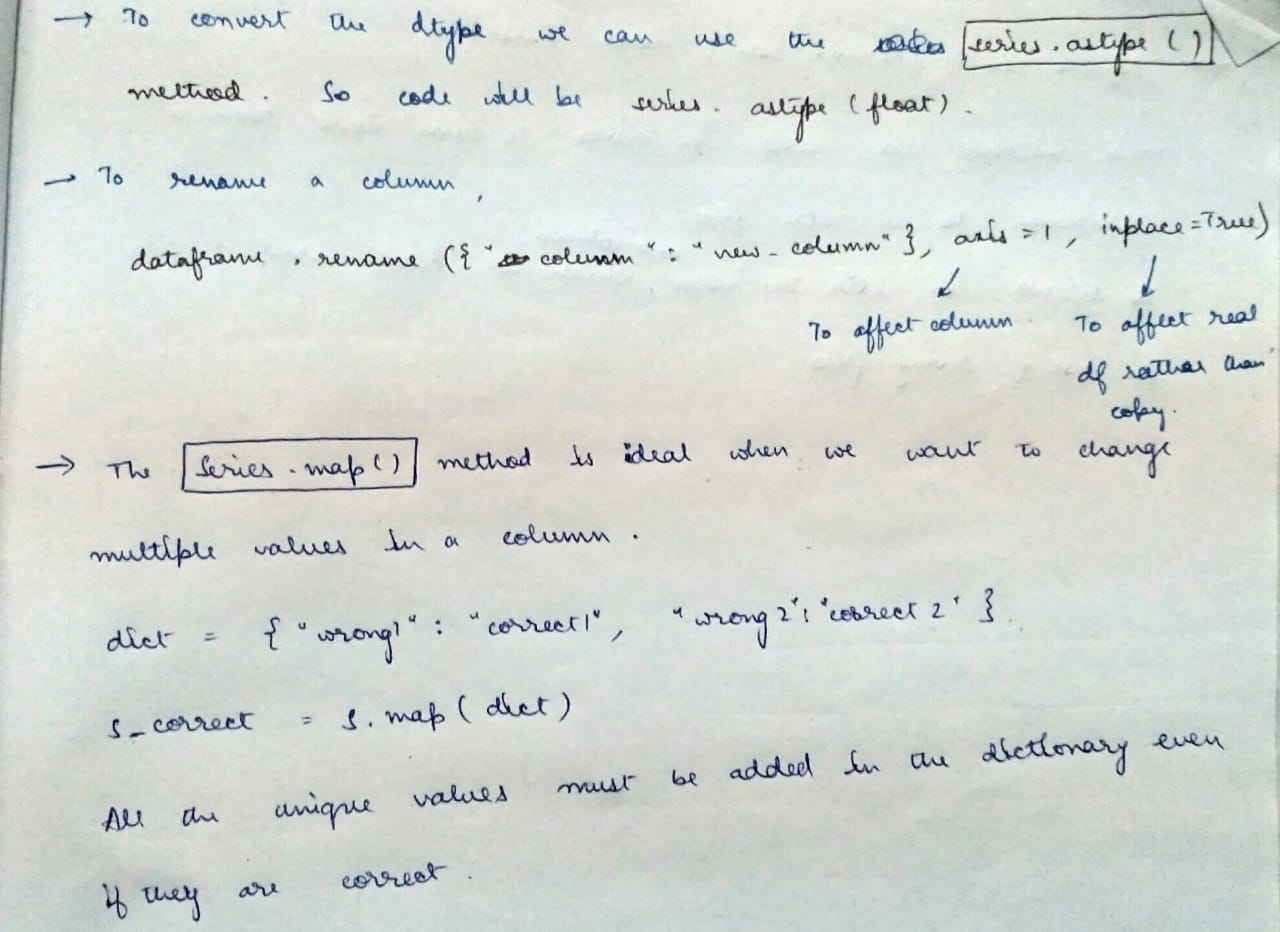 → To convert the dtype we can use the series.astype ()
method. So code will be series. astype (float).
→ To rename a column,
dataframe . rename ({ "column" : "new_column" }, axis = 1, inplace=True)
To affect column To affect real
df rather than
copy.
→ The Series.map() method is ideal when we want to change
multiple values in a column.
dict = { "wrong1" : "correct1", "wrong2": "correct 2" }.
s_correct = s.map (dict)
All the unique values must be added in the dictionary even
if they are correct.